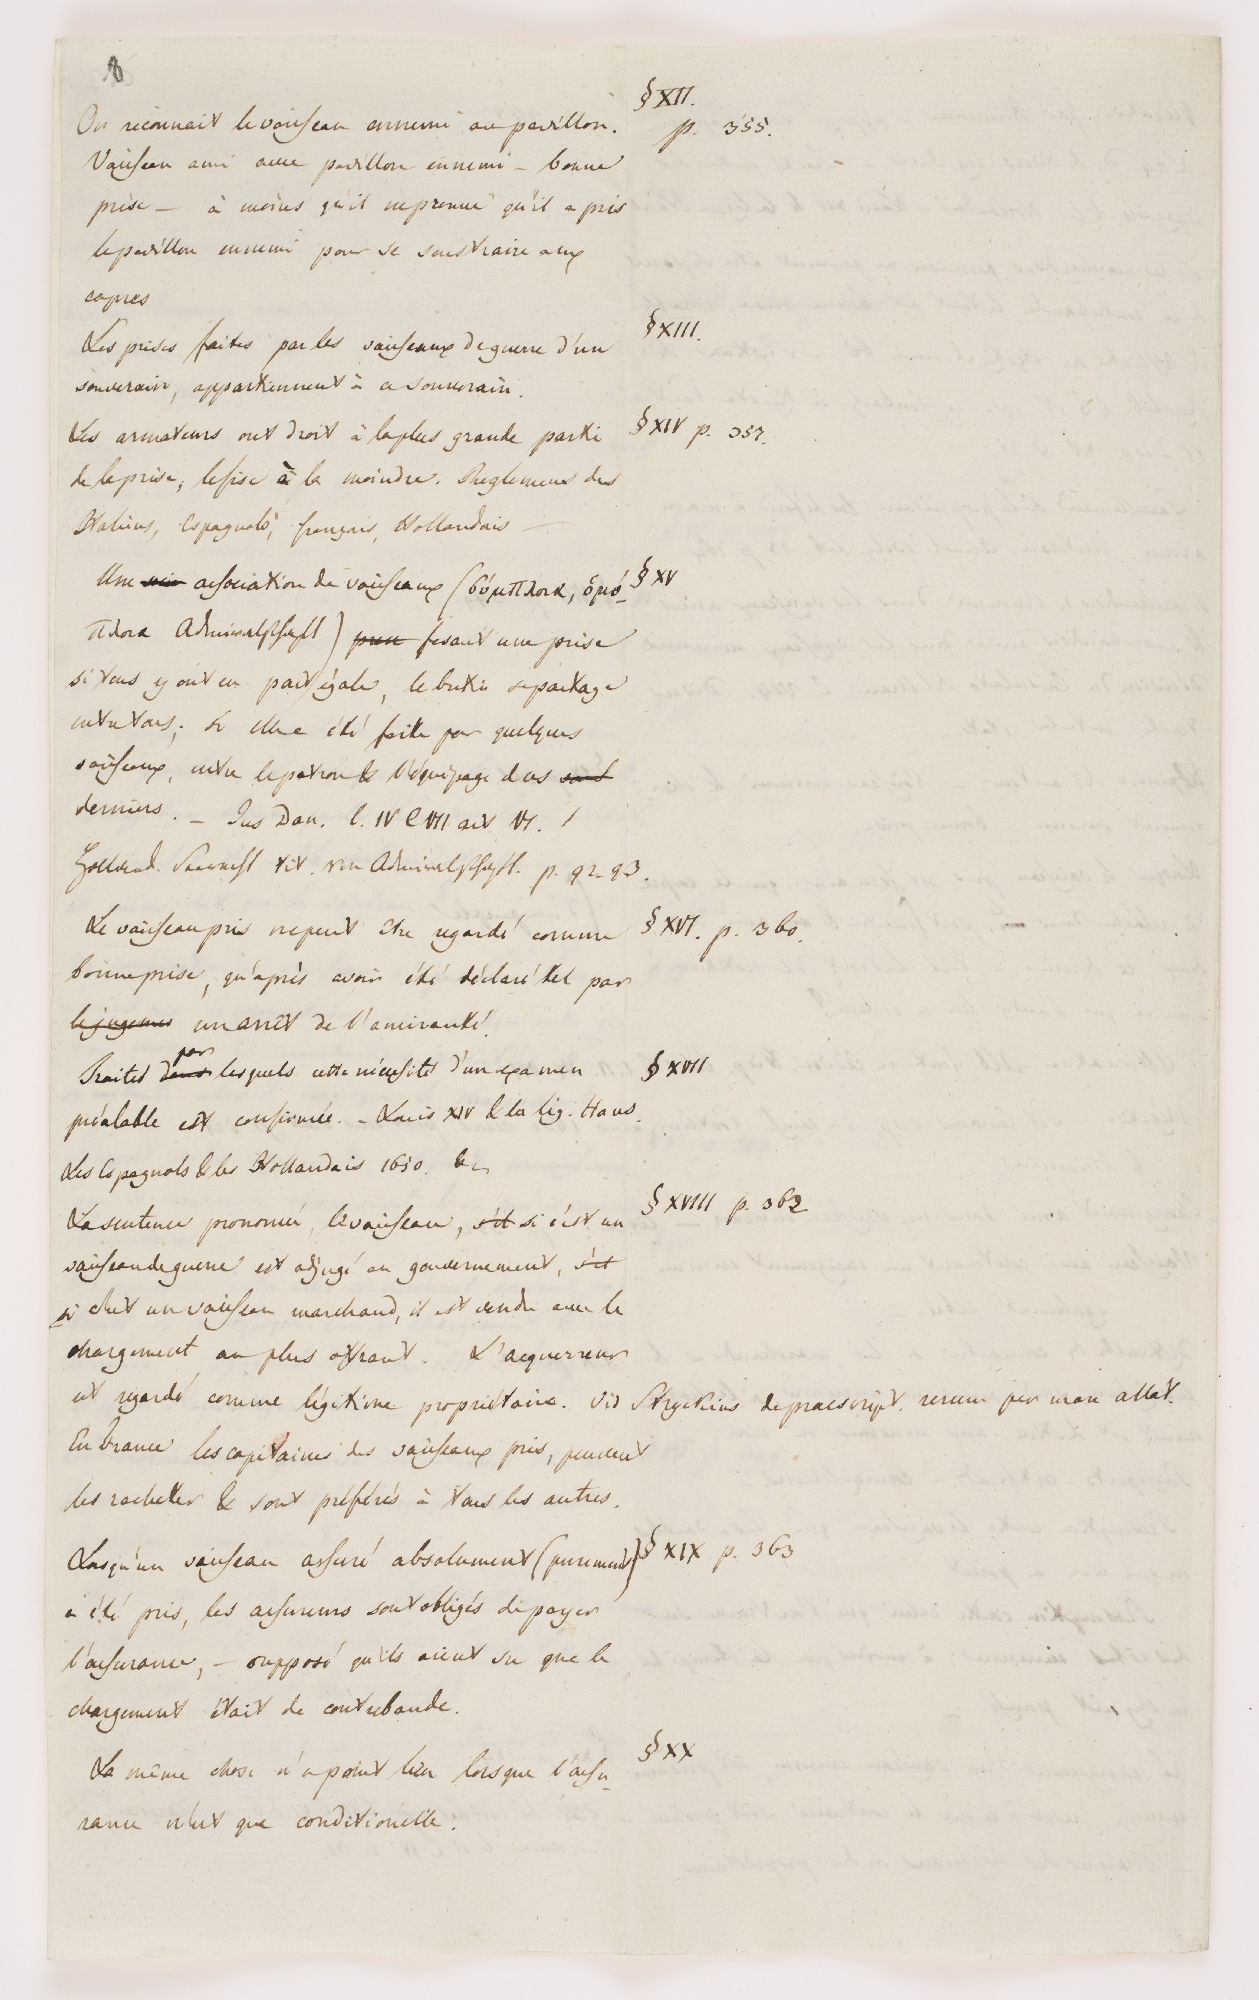 8
§ XII.
On reconnait le vaisseau ennemi au pavillon.
p. 355.
Vaisseau ami avec pavillon ennemi – bonne
prise – à moins qu'il ne prouve qu'il a pris
le pavillon ennemi pour se soustraire aux
capres
§ XIII.
Les prises faites par les vaisseaux de guerre d'un
souverain, appartiennent à ce souverain.
Les armateurs ont droit à la plus grande partie
§ XIV p. 357.
de la prise, le fisc à la moindre. Reglemens des
Italiens, Espagnols, français, Hollandais –
§ XV
Une association de vaisseaux (σύμπλοια, ὁμό-
πλοια Admiralschaft) fesant une prise
si tous y ont eu part égale, le butin se partage
entre tous; si elle a été faite par quelques
vaisseaux, entre le patron & l'équipage de ces
derniers. – Jus Dan. l. IV C VII art VI. /
Holländ. Seerecht tit. von Admiralschaft. p. 92-93.
Le vaisseau pris ne peut être regardé comme
§ XVI. p. 360.
bonne prise, qu'après avoir été déclaré tel par
le jugemen un arrêt de l'amirauté.
Traités dans par lesquels cette nécessité d'un examen
§ XVII
préalable est confirmée. – Louis XIV & la lig. Hans.
Les Espagnols & les Hollandais 1650. &c
§ XVIII p. 362
La sentence prononcée, le vaisseau, s'il si c'est un
vaisseau de guerre est adjugé au gouvernement, s'il
si c'est un vaisseau marchand, il est vendu avec le
chargement au plus offrant. L'acquerreur
est regardé comme légitime propriétaire. vid Strykius de praescript. rerum per mare allat.
En France les capitaines des vaisseaux pris, peuvent
les racheter & sont préférés à tous les autres.
Lorsqu'un vaisseau assuré absolument (purement)
§ XIX p. 363
a été pris, les assureurs sont obligés de payer
l'assurance, – supposé qu'ils aient su que le
chargement était de contrebande.
§ XX
La même chose n'a point lieu lorsque l'assu-
rance n'est que conditionelle.